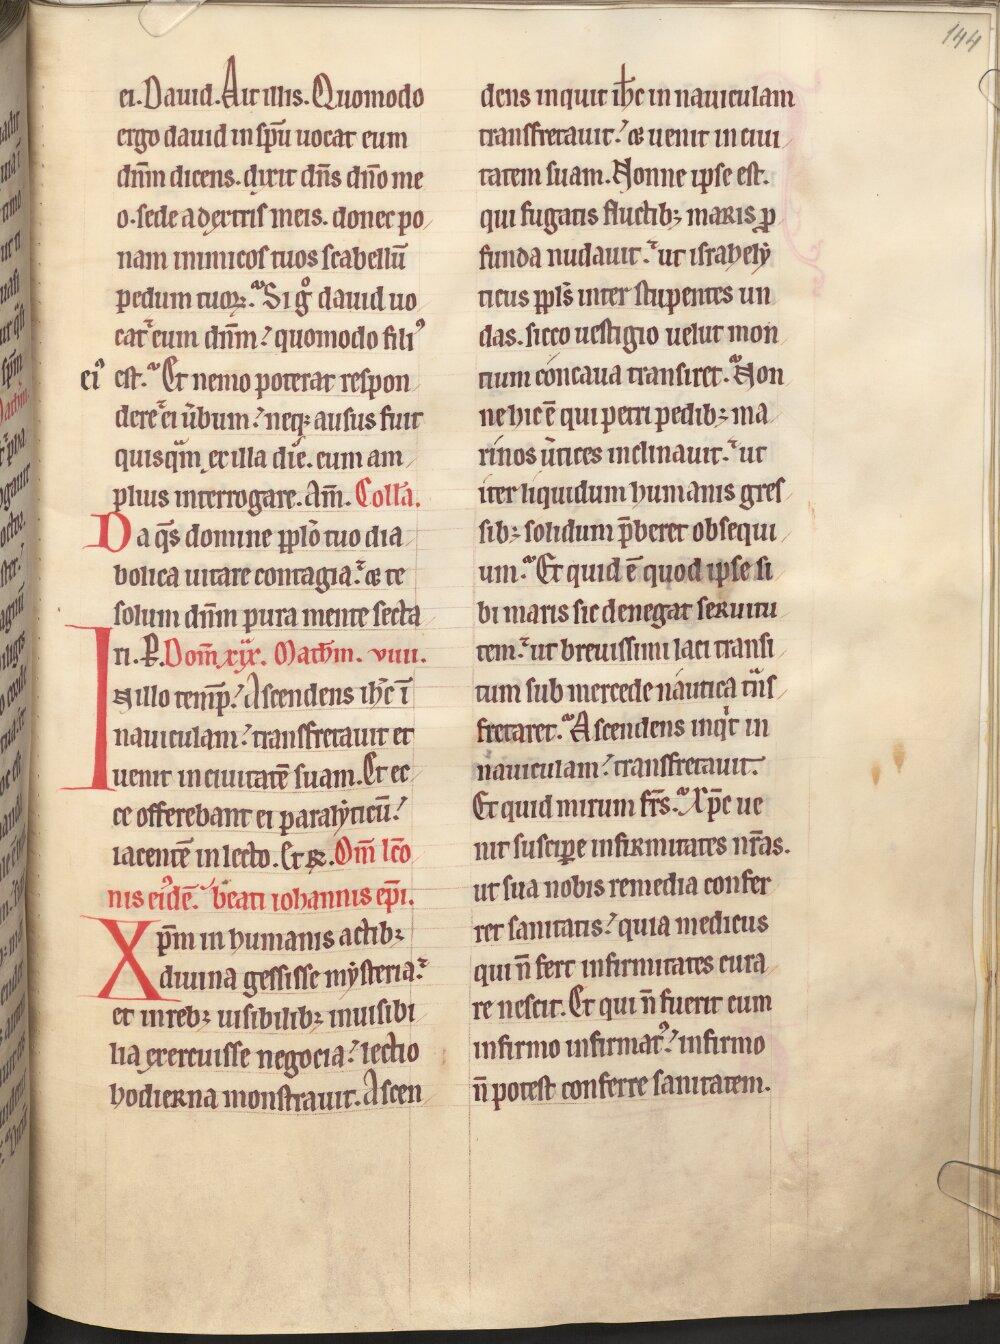 144
ei. Dauid. Ait illis. Quomodo
ergo dauid in sp̄u uocat eum
dn̄m dicens. dixit dn̄s dn̄o me
o. sede a dextris meis. donec po
nam inimicos tuos scabellū
pedum tuoꝝ. Si gͦ dauid uo
cat eum dn̄m? quomodo filiꝰ
eiꝰ est. Et nemo poterat respon
dere ei u̅bum? neqꝫ ausus fuit
quisqᷓm ex illa die. eum am
plius interrogare. Am̄. Coll̄a.
Da qs̄ domine ppl̄o tuo dia
bolica uitare contagia. ⁊ te
solum dn̄m pura mente secta
ri. P̲. Dom̄ xix. Math̄m. viiii.
In illo temp̄? Ascendens ih̄c ī
nauiculam? transfretauit et
uenit in ciuitatē suam. Et ec
ce offerebant ei paralẏticū?
iacentē in lecto. Et ꝶ. Om̄ lc̄o
nis eiꝰdē. beati iohannis ep̄i.
Xp̄m in humanis actibꝫ
diuina gessisse mẏsteria?
et in rebꝫ uisibilibꝫ inuisibi
lia exercuisse negocia? lectio
hodierna monstrauit. Ascen
dens inquit ih̄c in nauiculam
transfretauit? ⁊ uenit in ciui
tatem suam. Nonne ipse est.
qui fugatis fluctibꝫ maris ꝓ
funda nudauit. ut israhelẏ
ticus ppl̄s inter stupentes un
das. sicco uestigio uelut mon
tium concaua transiret. Non
ne hic ē qui petri pedibꝫ ma
rinos u̅tices inclinauit. ut
iter liquidum humanis gres
sibꝫ solidum p̄beret obsequi
um. Et quid ē quod ipse si
bi maris sic denegat seruitu
tem. ut breuissimi laci transi
tum sub mercede nautica tn̄s
fretaret. Ascendens inqͥt in
nauiculam? transfretauit.
Et quid mirum frs̄. Xp̄c ue
nit suscipe infirmitates nr̄as.
ut sua nobis remedia confer
ret sanitatis? quia medicus
qui n̄ fert infirmitates cura
re nescit. Et qui n̄ fuerit cum
infirmo infirmatꝰ? infirmo
n̄ potest conferre sanitatem.